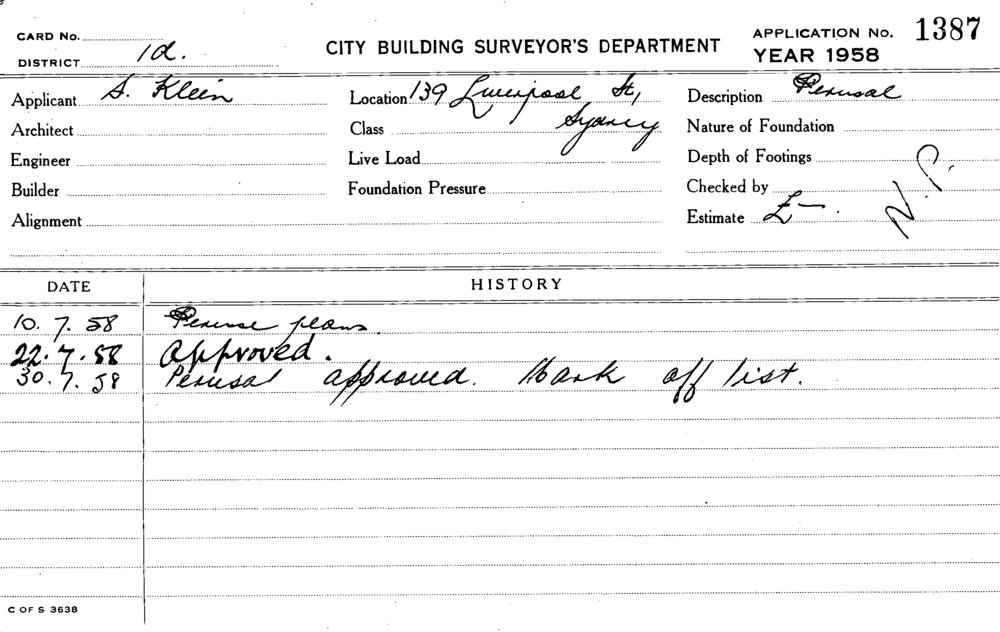 CARD No.
DISTRICT 1d.
CITY BUILDING SURVEYOR'S DEPARTMENT
APPLICATION No. 1387
YEAR 1958
Applicant S. Klein
Location 139 Liverpool St,
Sydney
Description Perusal
Architect
Class
Nature of Foundation
Engineer
Live Load
Depth of Footings
Builder
Foundation Pressure
Checked by
Alignment
Estimate £—.
N.P.
DATE HISTORY
10.7.58 Peruse plans.
22.7.58 Approved.
30.7.58 Perusal approved. Mark off list.
C OF S 3638